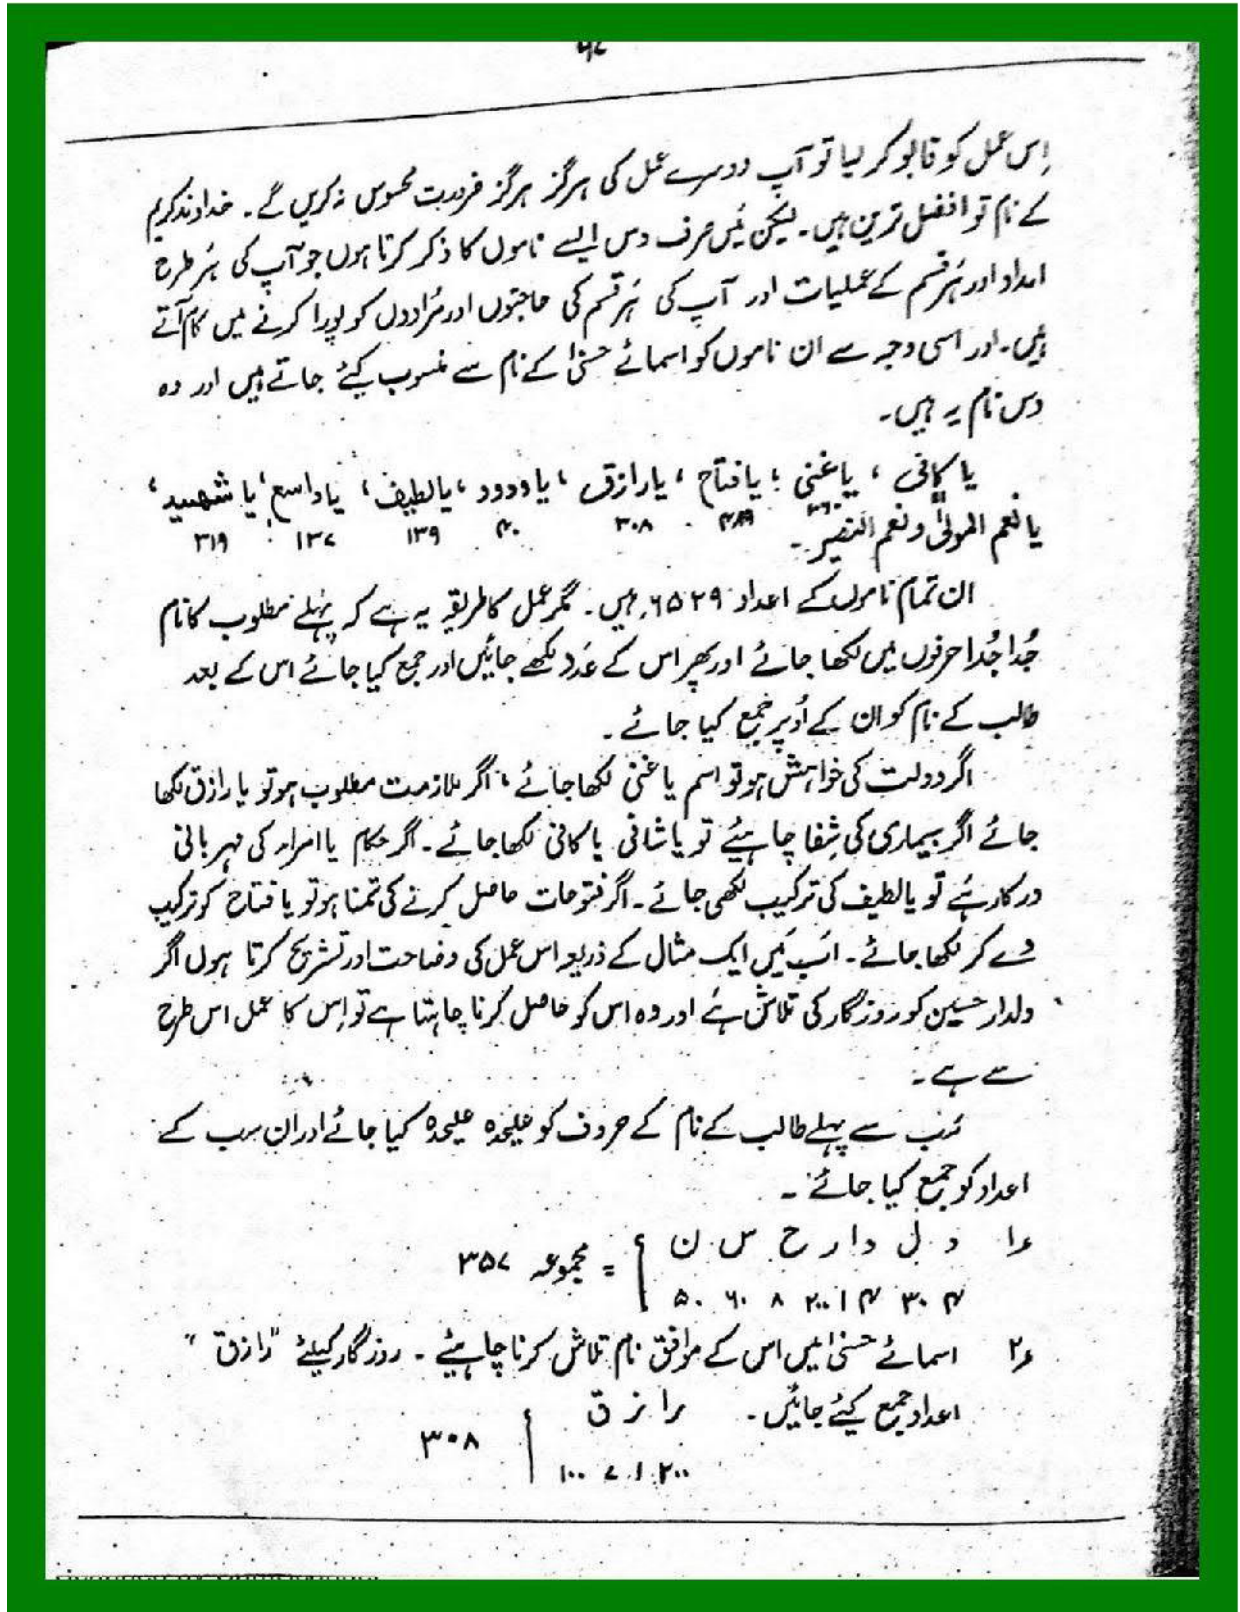 اِس عمل کو قابو کر لیا تو آپ دوسرے عمل کی ہرگز ہرگز ضرورت محسوس نہ کریں گے۔ خداوند کریم
کے نام تو افضل ترین ہیں۔ لیکن میں صرف دس ایسے ناموں کا ذکر کرتا ہوں جو آپ کی ہر طرح
امداد اور ہر قسم کے عملیات اور آپ کی ہر قسم کی حاجتوں اور مُرادوں کو پورا کرنے میں کام آتے
ہیں۔ اور اسی وجہ سے ان ناموں کو اسمائے حسنیٰ کے نام سے منسوب کیئے جاتے ہیں اور وہ
دس نام یہ ہیں۔
یا کافی ، یا غنی ؛ یا فتاح ، یا رازق ، یا ودود ، یا لطیف ، یا واسع ، یا شھید ،
۴۸۹ ۳۰۸ ۲۰ ۱۳۹ ۱۳۷ ۳۱۹
یا نعم المولیٰ و نعم النصیر۔
ان تمام ناموں کے اعداد ۶۵۲۹ ہیں۔ مگر عمل کا طریقہ یہ ہے کہ پہلے مطلوب کا نام
جُدا جُدا حرفوں میں لکھا جائے اور پھر اس کے عدد لکھے جائیں اور جمع کیا جائے اس کے بعد
طالب کے نام کو ان کے اُوپر جمع کیا جائے۔
اگر دولت کی خواہش ہو تو اسم یا غنی لکھا جائے ، اگر ملازمت مطلوب ہو تو یا رازق لکھا
جائے اگر بیماری کی شِفا چاہیئے تو یا شافی یا کافی لکھا جائے۔ اگر حکام یا امراء کی مہربانی
درکار ہے تو یا لطیف کی ترکیب لکھی جائے۔ اگر فتوحات حاصل کرنے کی تمنا ہو تو یا فتاح کو ترکیب
دے کر لکھا جائے۔ اَب میں ایک مثال کے ذریعہ اس عمل کی وضاحت اور تشریح کرتا ہوں اگر
دلدار حسین کو روزگار کی تلاش ہے اور وہ اس کو حاصل کرنا چاہتا ہے تو اِس کا عمل اس طرح
سے ہے۔
سَب سے پہلے طالب کے نام کے حروف کو علیحدہ علیحدہ کیا جائے اور ان سب کے
اعداد کو جمع کیا جائے ۔
۱؎ د ل د ا ر ح س ن } = مجموعہ ۳۵۷
۴ ۳۰ ۴ ۱ ۲۰۰ ۸ ۶۰ ۵۰
۲؎ اسمائے حسنیٰ میں اس کے موافق نام تلاش کرنا چاہیئے ۔ روزگار کیلئے "رازق"
اعداد جمع کیئے جائیں۔ ر ا ز ق } ۳۰۸
۲۰۰ ۱ ۷ ۱۰۰